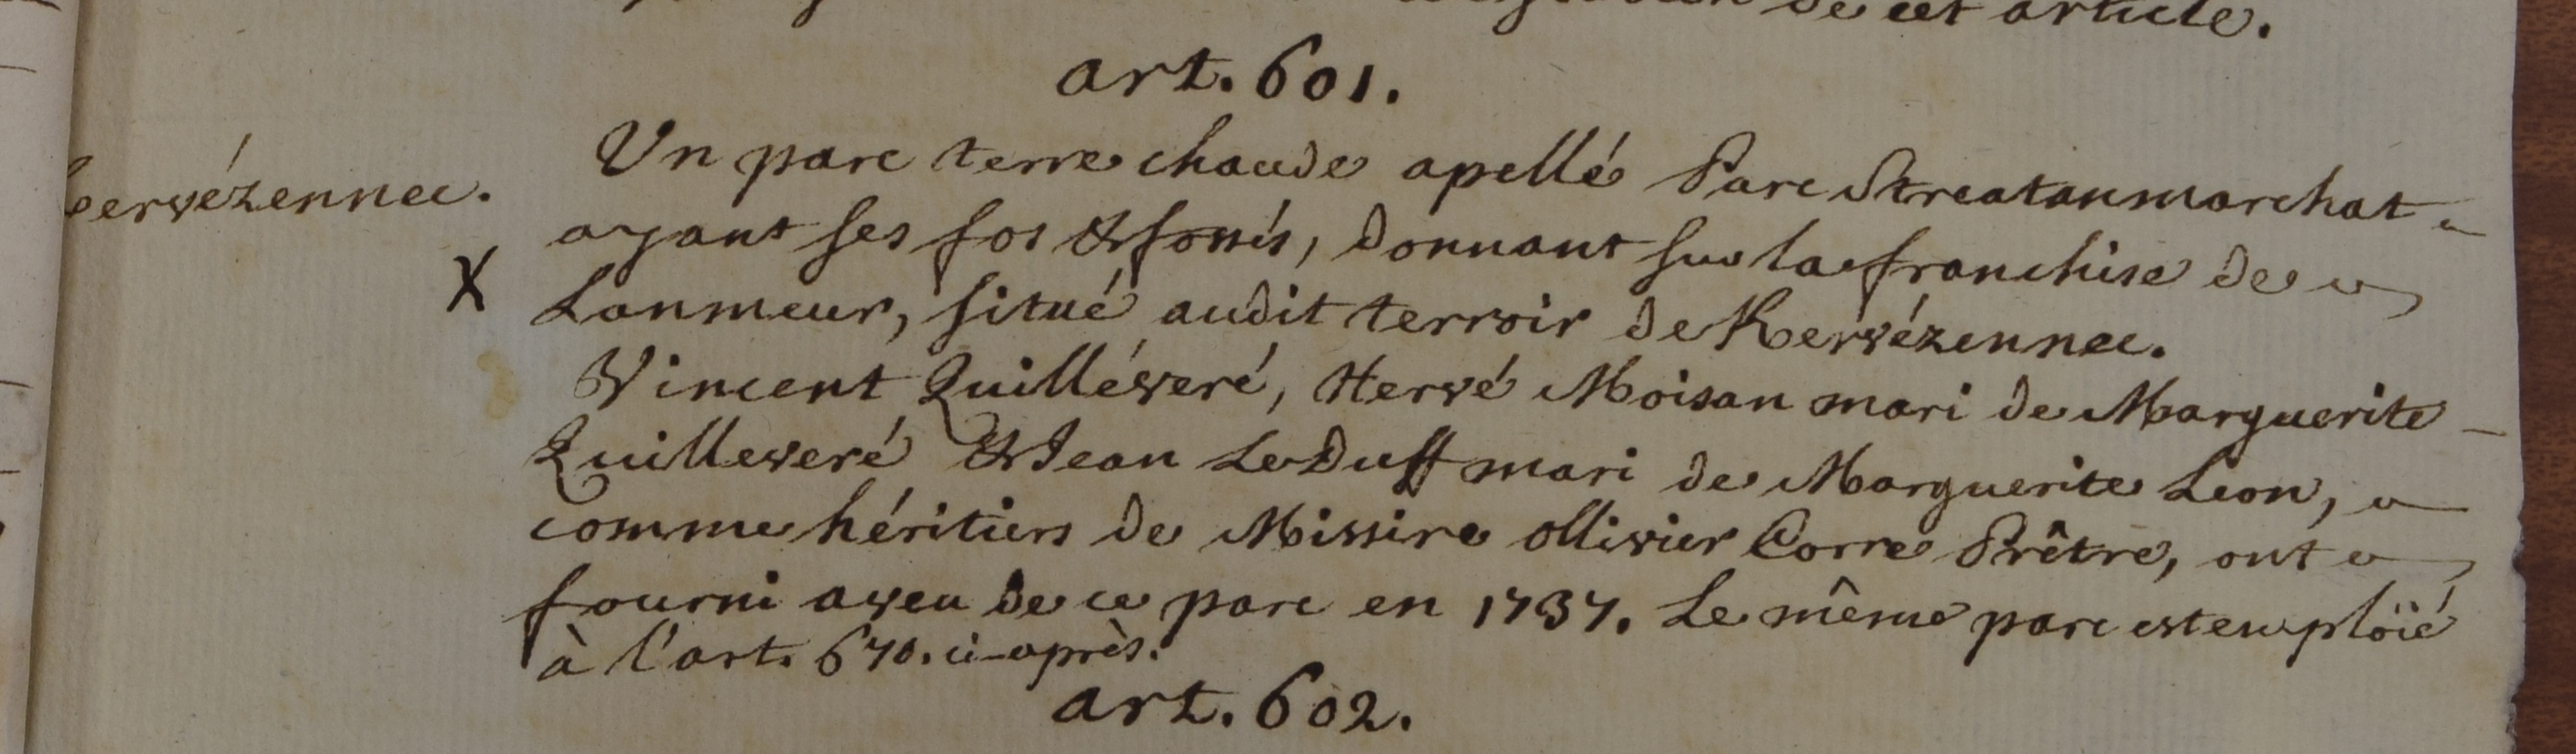 de cet article.
art. 601.
Kervézennec.
Un parc terre chaude apellé Parc Streatanmarchat
ayant ses fos & fossés, donnant sur la franchise de
X
Lanmeur, situé audit terroir de Kervézennec.
Vincent Quilléveré, Hervé Moisan mari de Marguerite
Quilleveré & Jean Le Duff mari de Marguerite Leon,
comme héritiers de Missire ollivier Corre Prêtre, ont
fourni aveu de ce parc en 1737. Le même parc est emploïé
à l'art. 670. ci-après.
art. 602.